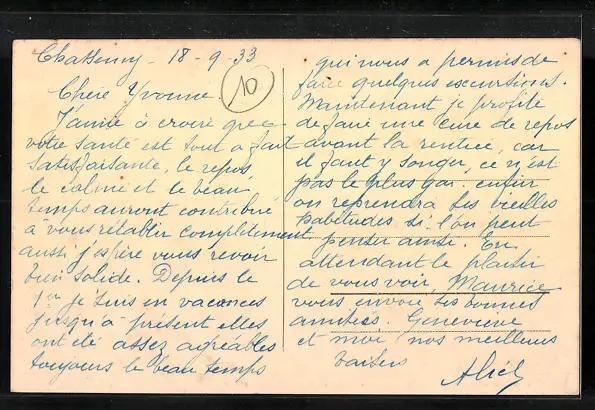 Chattenay - 18-9-33
10
Chère Yvonne
J'aime à croire que
votre santé est tout a fait
satisfaisante, le repos,
le calme et le beau
temps auront contribué
à vous rétablir complètement
aussi j'espère vous revoir
bien solide. Depuis le
1er je suis en vacances
jusqu'à présent elles
ont été assez agréables
toujours le beau temps
qui nous a permis de
faire quelques excursions.
Maintenant je profite
de faire une cure de repos
avant la rentrée, car
il faut y songer, ce n'est
pas le plus gai. enfin
on reprendra ses vieilles
habitudes si l'on peut
penser ainsi. En
attendant le plaisir
de vous voir, Maurice
vous envoie ses bonnes
amitiés. Geneviève
et moi nos meilleurs
baisers